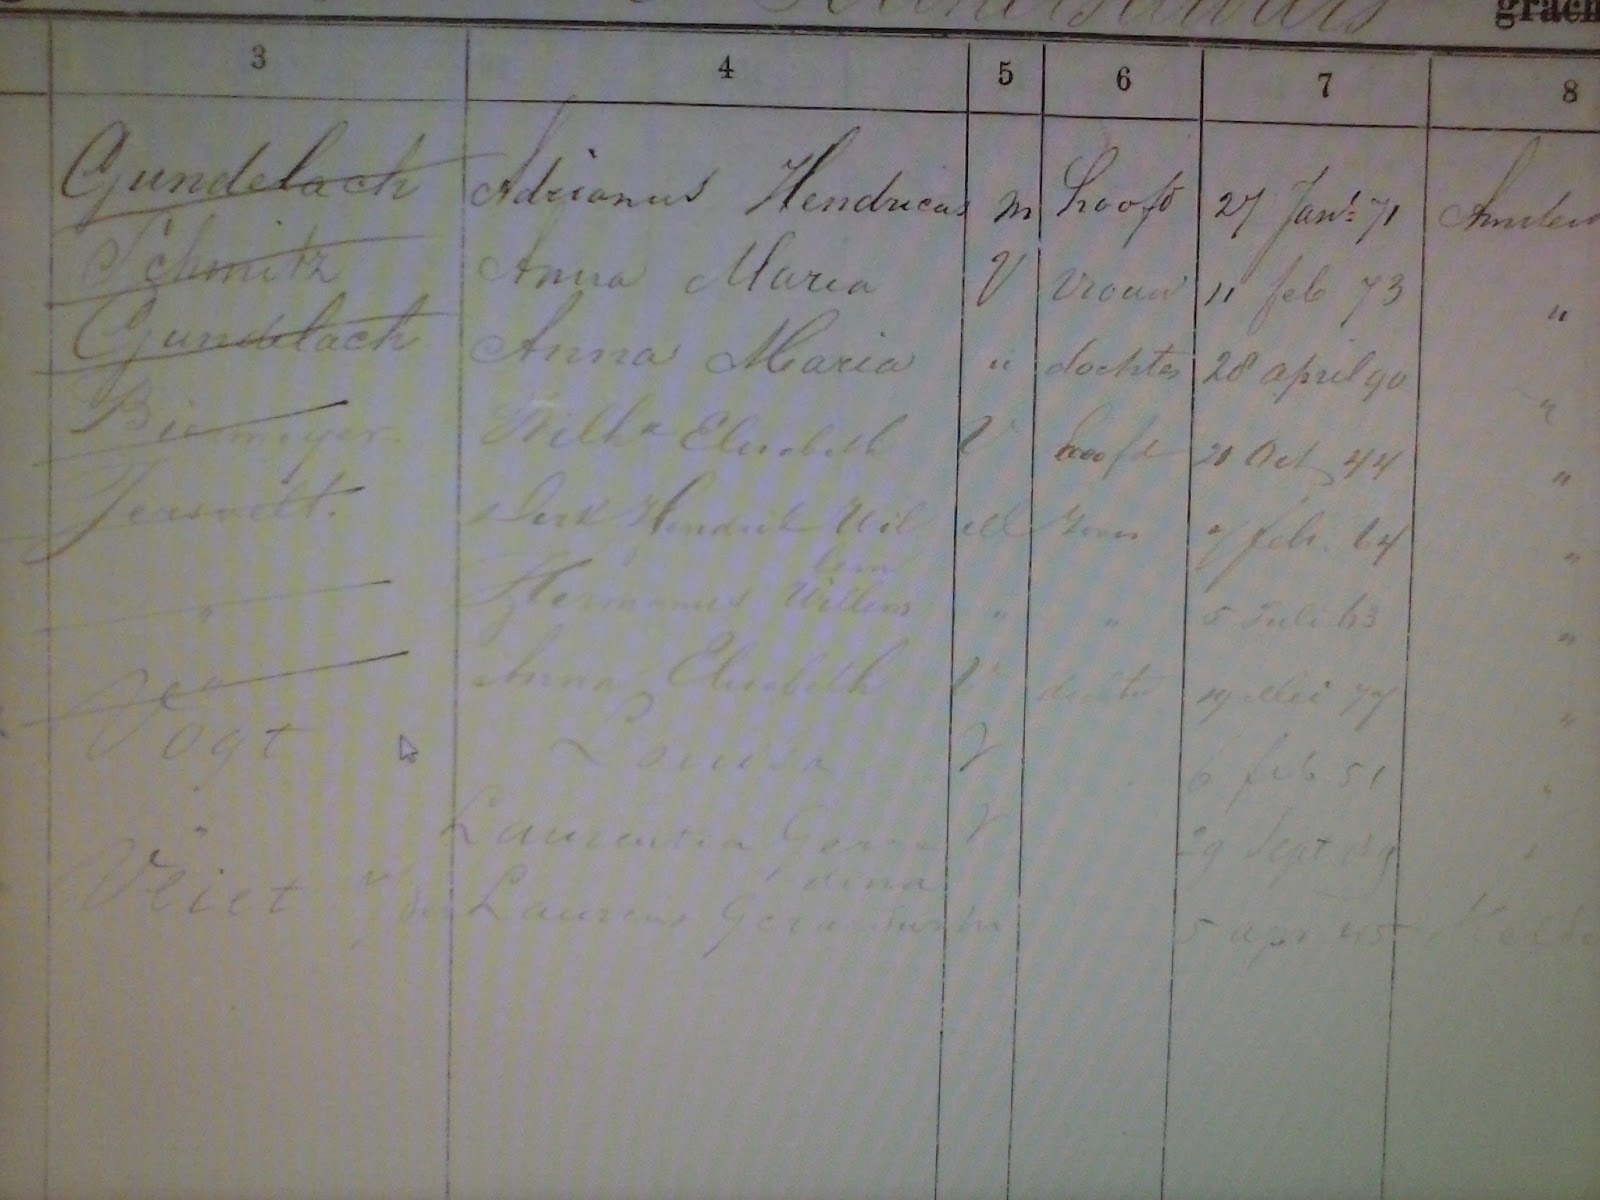 grach
3 4 5 6 7 8
Gundelach Adrianus Hendricus m hoofd 27 Jan: 71
Schmitz Anna Maria V vrouw 11 feb 73 "
Gundelach Anna Maria " dochter 28 april 90 "
Wilha Elisabeth V hoofd 20 Oct 44 "
Hendrik Wil M Zoon feb. 64 "
lem
" Hermanus Willem " " 5 Juli 63 "
Anna Elisabeth V dochter 19 Mei 77 "
Vogt Louisa V 6 feb 51 "
" Laurentia Gerar V 29 Sept "
dina
Vliet v der Laurens Gerardus m 5 apr 45